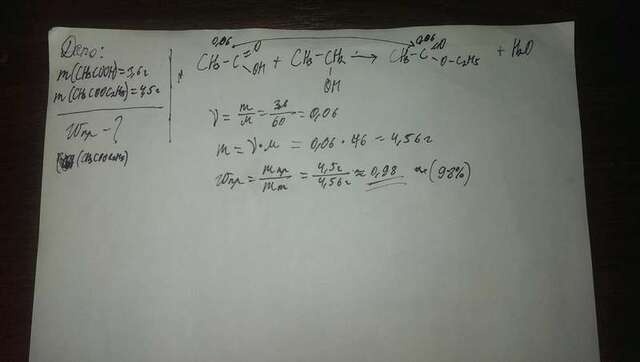 Дано:
m(CH3COOH)=3,6г
m(CH3COOC2H5)=4,5г
Wпр - ?
(CH3COOC2H5)
0,06 0,06
CH3-C O OH + CH3-CH2 OH → CH3-C O O-C2H5 + H2O
γ = m/M = 3,6/60 = 0,06
m = γ·M = 0,06 · 46 = 4,56г
Wпр = mпр/mт = 4,5г/4,56г ≈ 0,98 или (98%)